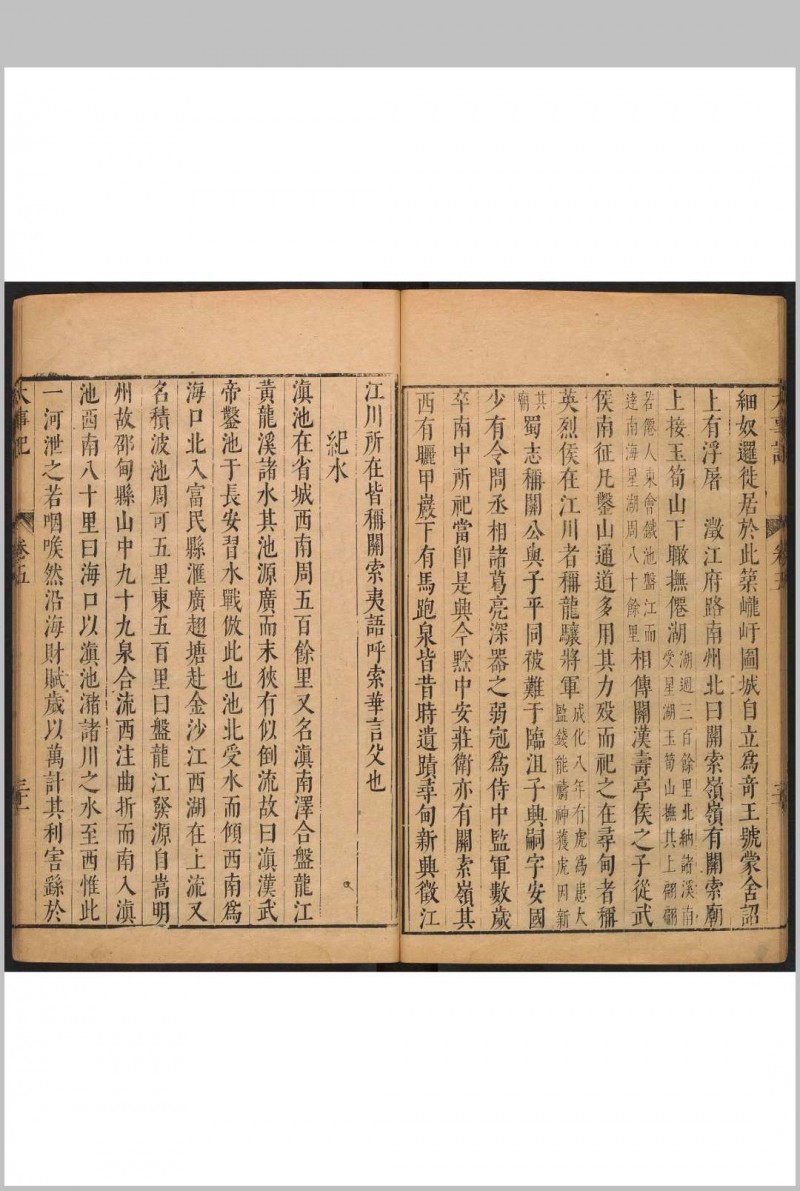 細奴邏徙居於此築巄𡵆圖城自立為奇王號蒙舍詔
上有浮屠　澂江府路南州北曰關索嶺嶺有關索廟
上接玉筍山下瞰撫僊湖湖週三百餘里北納諸溪南受星湖玉筍山撫其上
若僊人東會鐵池盤江而達南海星湖周八十餘里相傳關漢壽亭侯之子從武
侯南征凡鑿山通道多用其力歿而祀之在尋甸者稱
英烈侯在江川者稱龍驤將軍成化八年有虎為患大監錢能禱神獲虎因新
其廟蜀志稱關公與子平同被難于臨沮子興嗣字安國
少有令問丞相諸葛亮深器之弱冠為侍中監軍數歲
卒南中所祀當卽是興今黔中安莊衛亦有關索嶺其
西有曬甲巖下有馬跑泉皆昔時遺蹟尋甸新興徵江
江川所在皆稱關索夷語呼索華言父也
紀水
滇池在省城西南周五百餘里又名滇南澤合盤龍江
黃龍溪諸水其池源廣而末狹有似倒流故曰滇漢武
帝鑿池于長安習水戰倣此也池北受水而傾西南為
海口北入富民縣滙廣翅塘赴金沙江西湖在上流又
名積波池周可五里東五百里曰盤龍江發源自嵩明
州故邵甸縣山中九十九泉合流西注曲折而南入滇
池西南八十里曰海口以滇池瀦諸川之水至西惟此
一河泄之若咽喉然沿海財賦歲以萬計其利害繇於
大事記　卷五